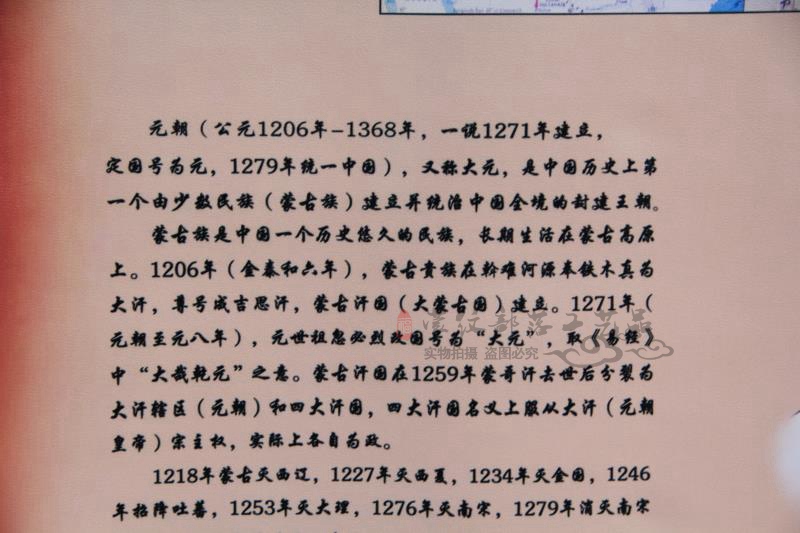 元朝（公元1206年-1368年，一说1271年建立，
定国号为元，1279年统一中国），又称大元，是中国历史上第
一个由少数民族（蒙古族）建立并统治中国全境的封建王朝。
蒙古族是中国一个历史悠久的民族，长期生活在蒙古高原
上。1206年（金泰和六年），蒙古贵族在斡难河源奉铁木真为
大汗，尊号成吉思汗，蒙古汗国（大蒙古国）建立。1271年（
元朝至元八年），元世祖忽必烈改国号为“大元”，取《易经》
中“大哉乾元”之意。蒙古汗国在1259年蒙哥汗去世后分裂为
大汗辖区（元朝）和四大汗国，四大汗国名义上服从大汗（元朝
皇帝）宗主权，实际上各自为政。
1218年蒙古灭西辽，1227年灭西夏，1234年灭金国，1246
年招降吐蕃，1253年灭大理，1276年灭南宋，1279年消灭南宋
实物拍摄 盗图必究